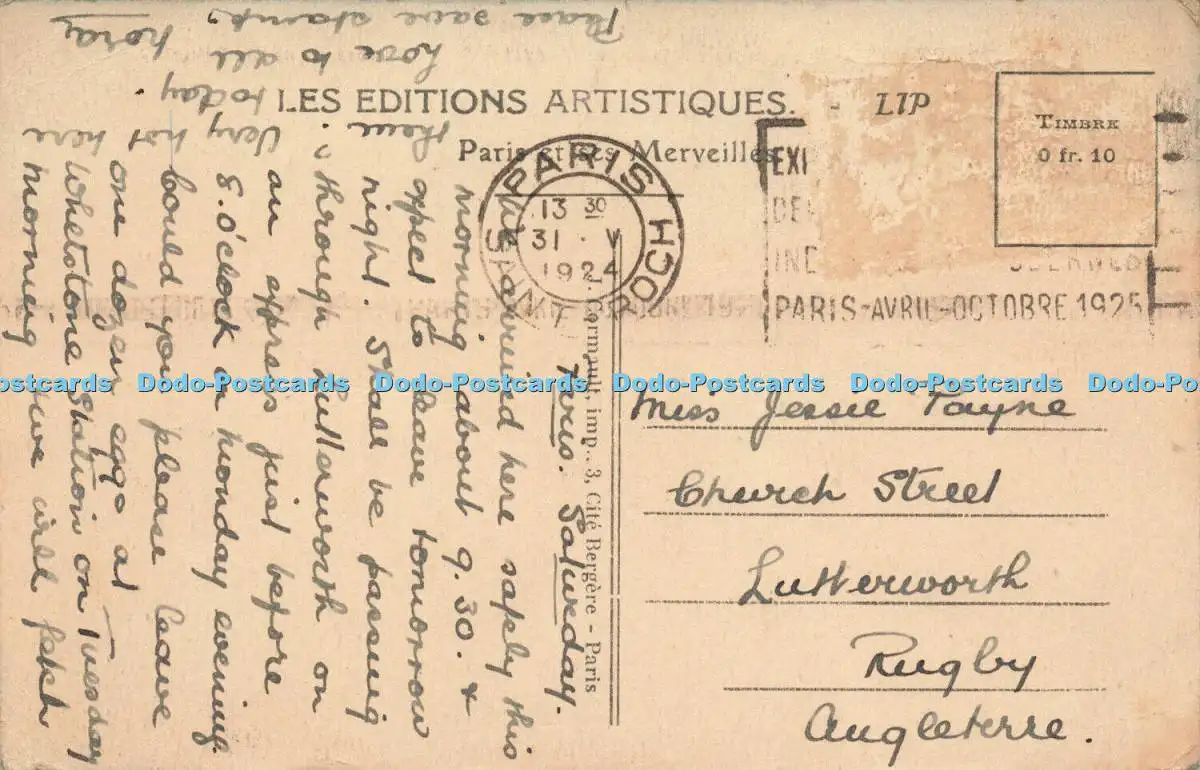 LES EDITIONS ARTISTIQUES. - LIP
Paris et ses Merveilles
TIMBRE
0 fr. 10
PARIS
13 30
31 · V
1924
EXP
PARIS-AVRIL-OCTOBRE 1925
Cormault, imp., 3, Cité Bergère - Paris
Paris. Saturday.
We arrived here safely this
morning about 9.30. &
expect to leave tomorrow
night. Shall be passing
through Lutterworth on
an express just before
8.0'clock on Monday evening.
Could you please leave
one dozen eggs at
Whetstone Station on Tuesday
morning & we will fetch
them.
Very hot here
today.
Love to all
Nora
Please save stamps
Miss Jessie Payne
Church Street
Lutterworth
Rugby
Angleterre.
Dodo-Postcards Dodo-Postcards Dodo-Postcards Dodo-Postcards Dodo-Postcards Dodo-Postcards